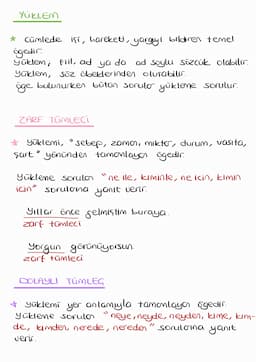 YÜKLEM
* Cümlede işi, hareketi, yargıyı bildiren temel
ögedir.
Yüklem, fiil, ad ya da ad soylu sözcük olabilir.
Yüklem, söz öbeklerinden oluşabilir.
öge bulunurken bütün sorular yükleme sorulur.
ZARF TÜMLECİ
* Yüklemi, "sebep, zaman, miktar, durum, vasıta,
şart" yönünden tamamlayan ögedir.
Yükleme sorulan "ne ile, kiminle, ne için, kimin
için" sorularına yanıt verir.
Yıllar önce gelmiştim buraya.
zarf tümleci
Yorgun görünüyorsun.
zarf tümleci
DOLAYLI TÜMLEÇ
* Yüklemi yer anlamıyla tamamlayan ögedir.
Yükleme sorulan "neye, neyde, neyden, kime, kim-
de, kimden, nerede, nereden" sorularına yanıt
verir.